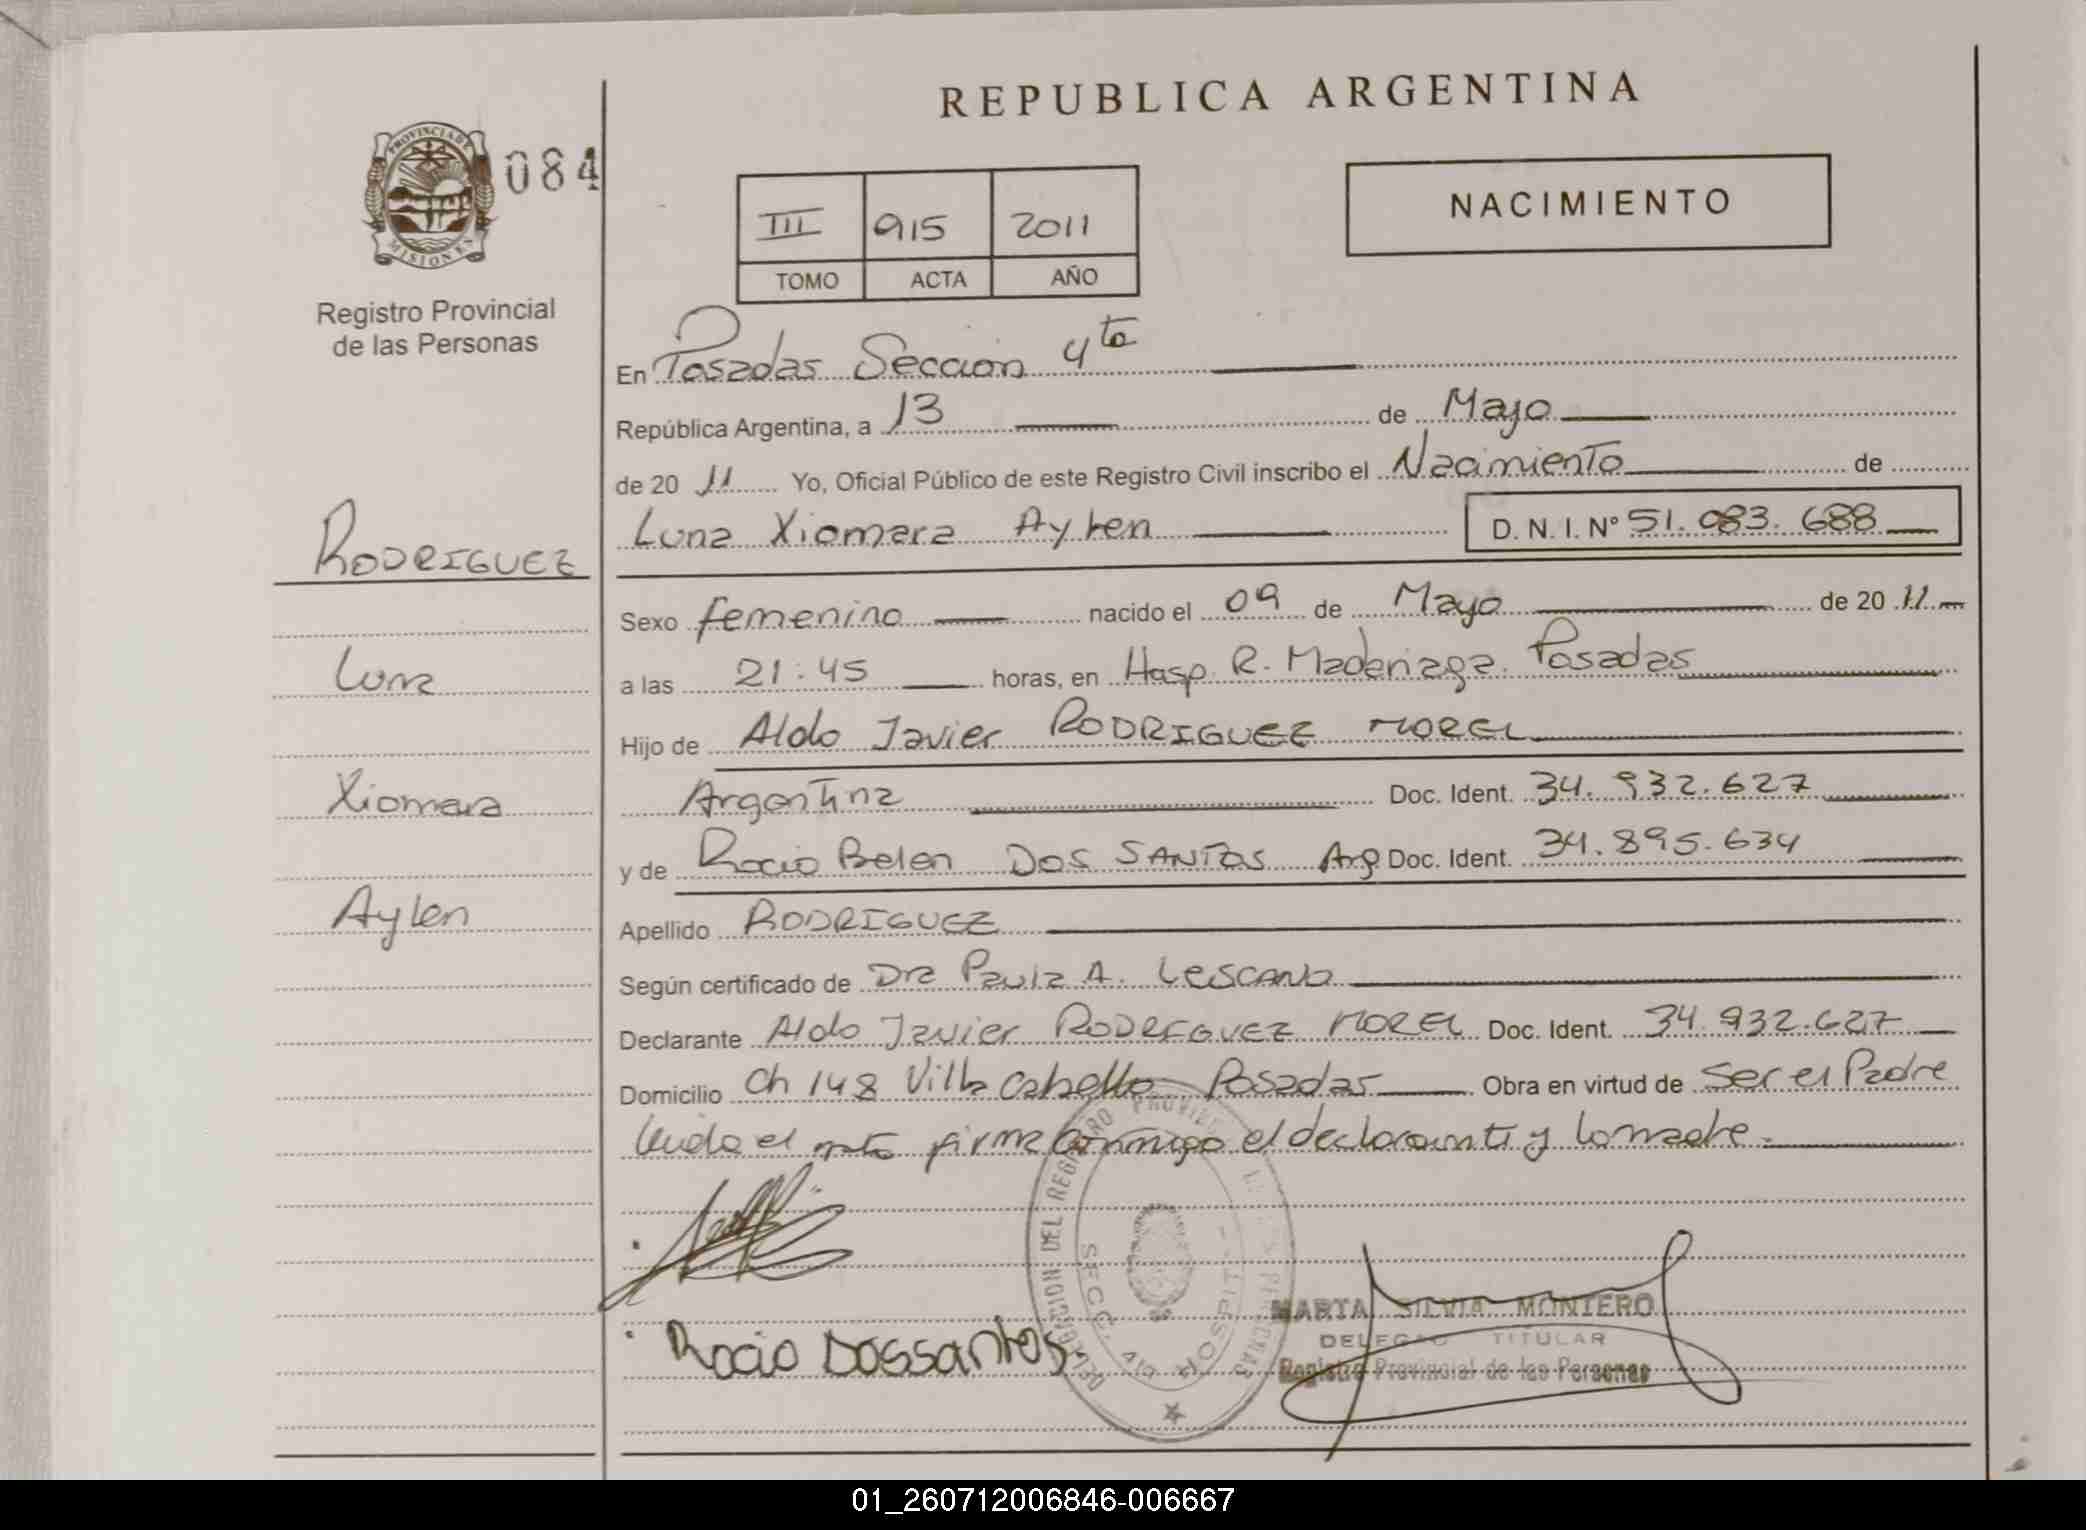 REPUBLICA ARGENTINA
PROVINCIA DE
MISIONES
084
Registro Provincial
de las Personas
III 915 2011
TOMO ACTA AÑO
NACIMIENTO
En Posadas Sección 4ta
República Argentina, a 13 de Mayo
de 20 11 Yo, Oficial Público de este Registro Civil inscribo el Nacimiento de
Luna Xiomara Aylen D. N. I. Nº 51.083.688
RODRIGUEZ
Luna
Xiomara
Aylen
Sexo femenino nacido el 09 de Mayo de 20 11
a las 21:45 horas, en Hosp. R. Madariaga. Posadas
Hijo de Aldo Javier RODRIGUEZ MOREL
Argentina Doc. Ident. 34.932.627
y de Rocio Belen DOS SANTOS Arg Doc. Ident. 34.895.634
Apellido RODRIGUEZ
Según certificado de Dra Paula A. LESCANO
Declarante Aldo Javier RODRIGUEZ MOREL Doc. Ident. 34.932.627
Domicilio Ch 148 Villa Cabello Posadas Obra en virtud de Ser el Padre
leida el acta firma conmigo el declarante y la madre.
Rocio Dossantos
DELEGACION DEL REGISTRO PROVINCIAL DE LAS PERSONAS
SECC. 4ta HOSPIT
MARTA SILVIA MONTERO
DELEGAD TITULAR
Registro Provincial de las Personas
01_260712006846-006667